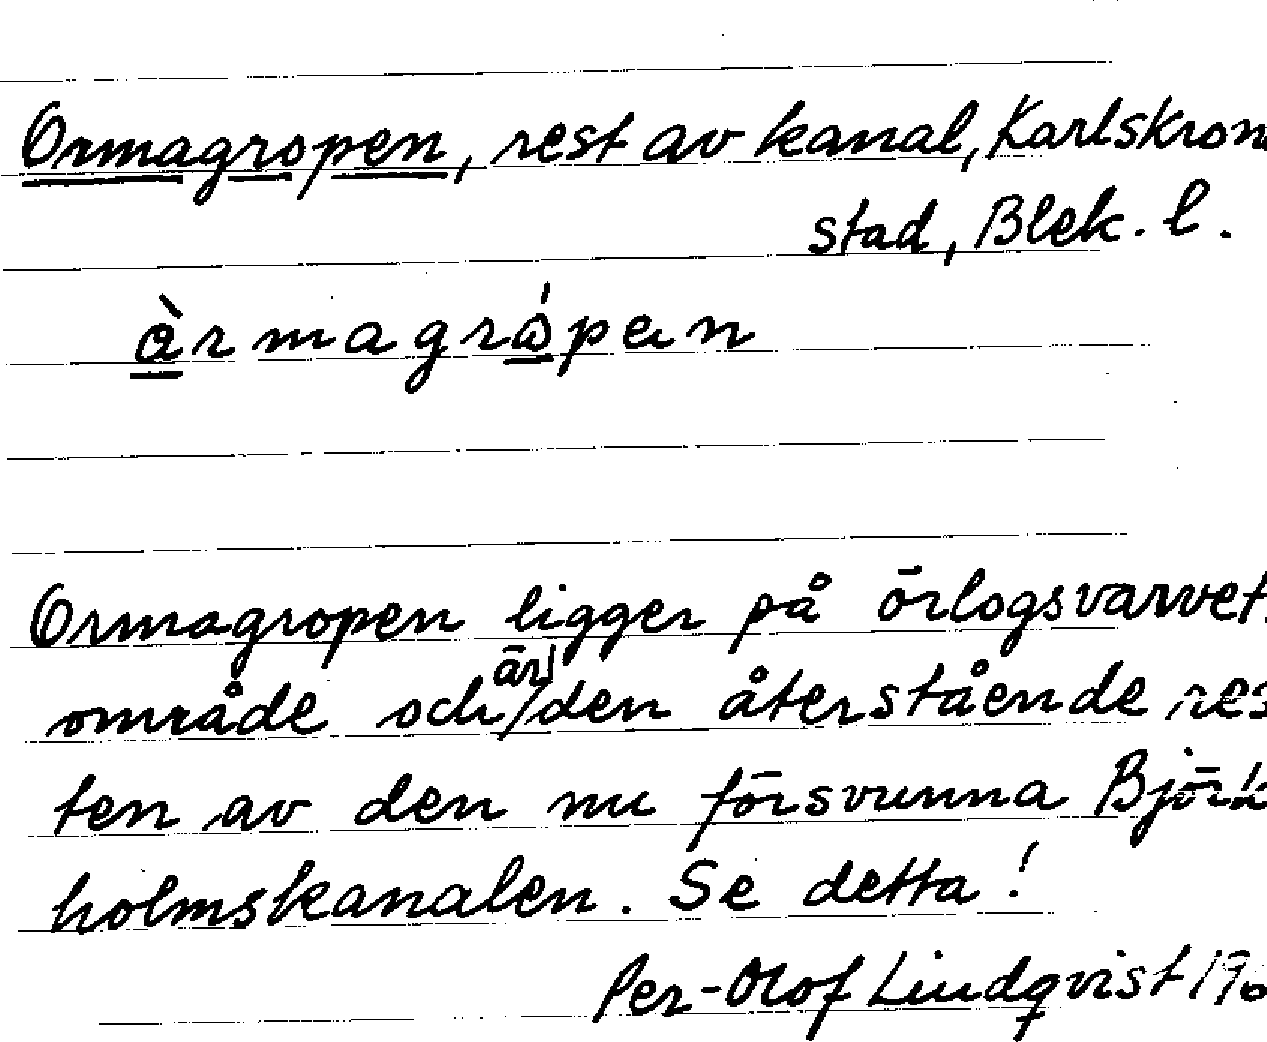 Ormagropen, rest av kanal, Karlskron
stad, Blek. l.
àrmagrópen
Ormagropen ligger på örlogsvarvet
område och /är/ den återstående res
ten av den nu försvunna Björk
holmskanalen. Se detta!
Per-Olof Lindqvist 196